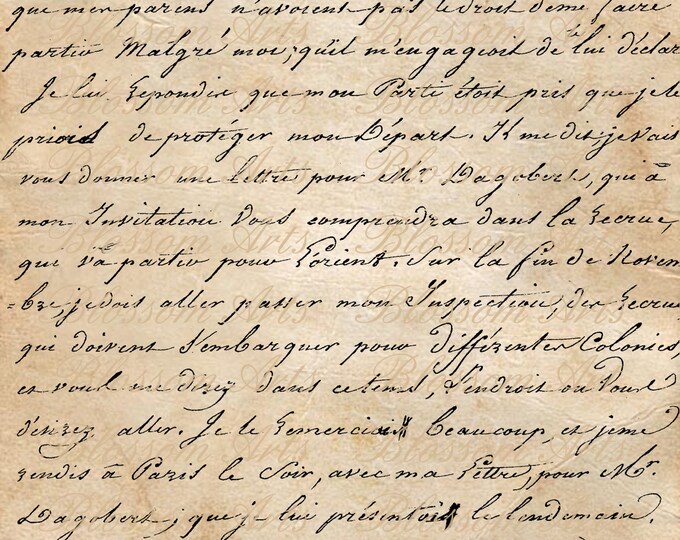 que mer parens n'avoient pas le droit deme faire
partir Malgré moi, quil m'engagioit de le lui déclar
Je lui Repondis que mon Parti étoit pris que je le
priois de protéger mon Départ. Il me dit, je vais
vous donner une lettre pour Mr. Dagobert, qui à
mon Invitation Vous comprendra dans la Recrue,
qui va partir pour L'orient. Sur la fin de Novem
=bre, je dois aller passer mon Inspection, der Recrue
qui doivent s'embarquer pour différenter Colonies,
et vous me direz dans ce tems, L'endroit ou Vous
désirez aller. Je le Remerciai Beaucoup, et jeme
rendis à Paris le Soir, avec ma Lettre, pour Mr.
Dagobert, que je lui présentois le lendemain.